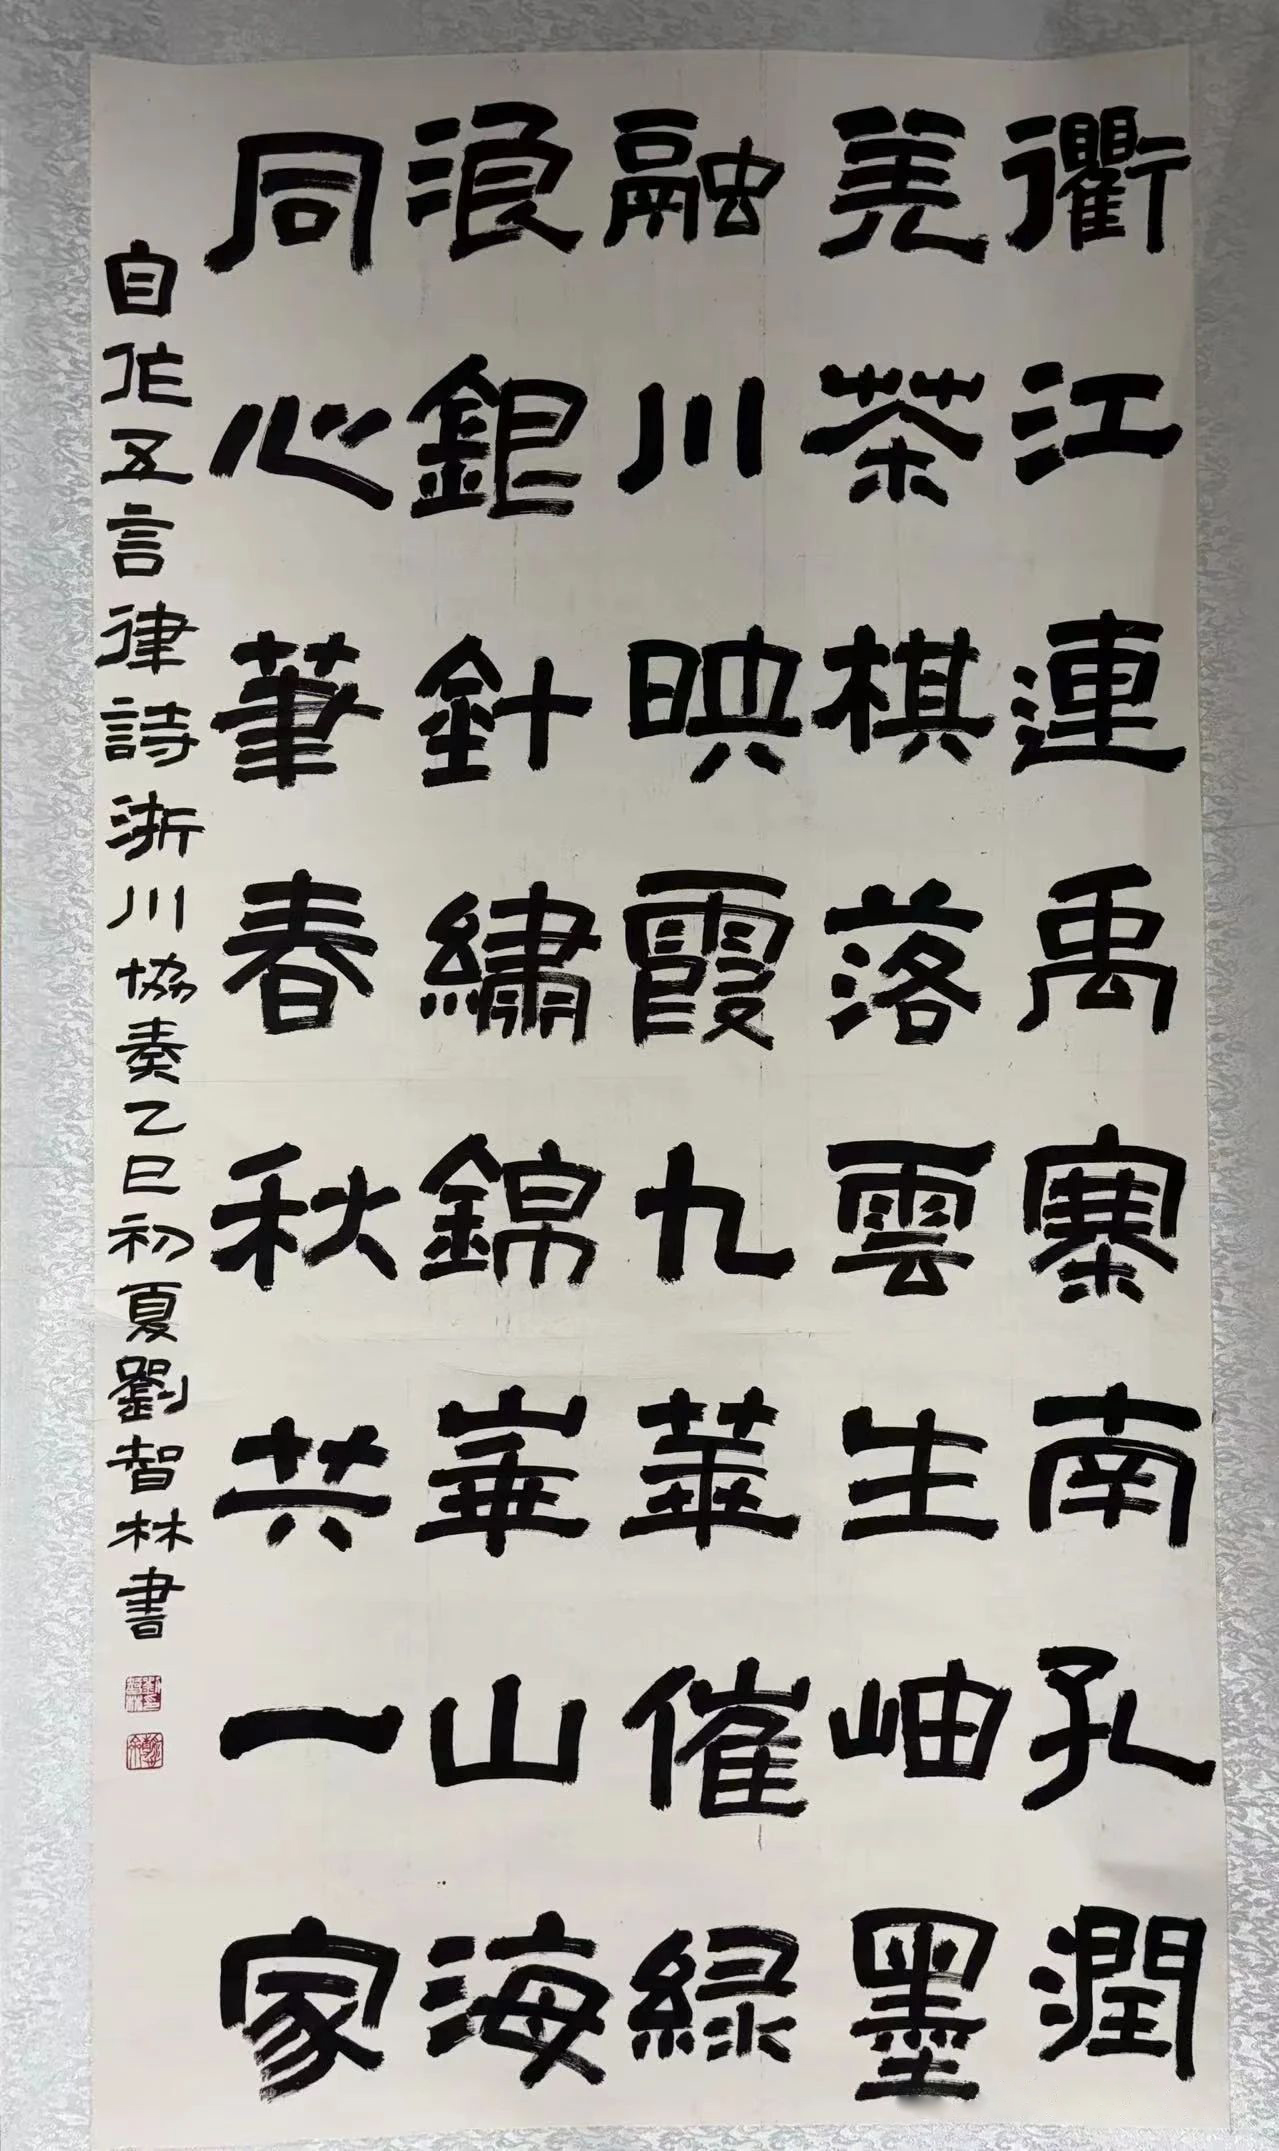 衢江連禹寨南孔潤
羌茶棋落雲生岫墨
融川映霞九華催緑
浪銀針繡錦崋山海
同心筆春秋共一家
自作五言律詩浙川協奏乙巳初夏劉智林書